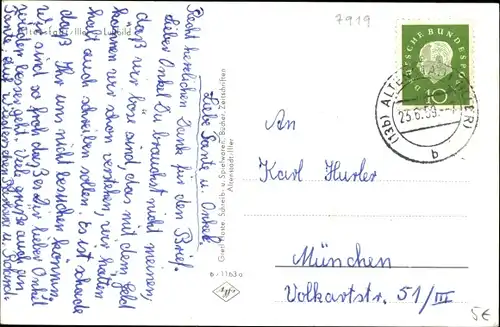 7919
Liebe Tante u. Onkel
Recht herzlichen Dank für den Brief.
Lieber Onkel Du brauchst nicht meinen,
daß wir böse sind, das mit dem Geld
können wir schon verstehen, wir hätten
halt auch schreiben sollen. Es ist schade
daß Ihr uns nicht besuchen können,
wir sind so froh das Es Dir lieber Onkel
wieder besser geht. Viele Grüße auch an
Tante aus
Barbara u. Roland.
Greti Motte, Schreib- u. Spielwaren, Bücher, Zeitschriften
Altenstadt-Iller
6-1163a
DEUTSCHE BUNDESPOST
10
(13b) ALTENSTADT (ILLER)
23.6.59.
b
An
Karl Hurler
München
Volkartstr. 51/III
5€